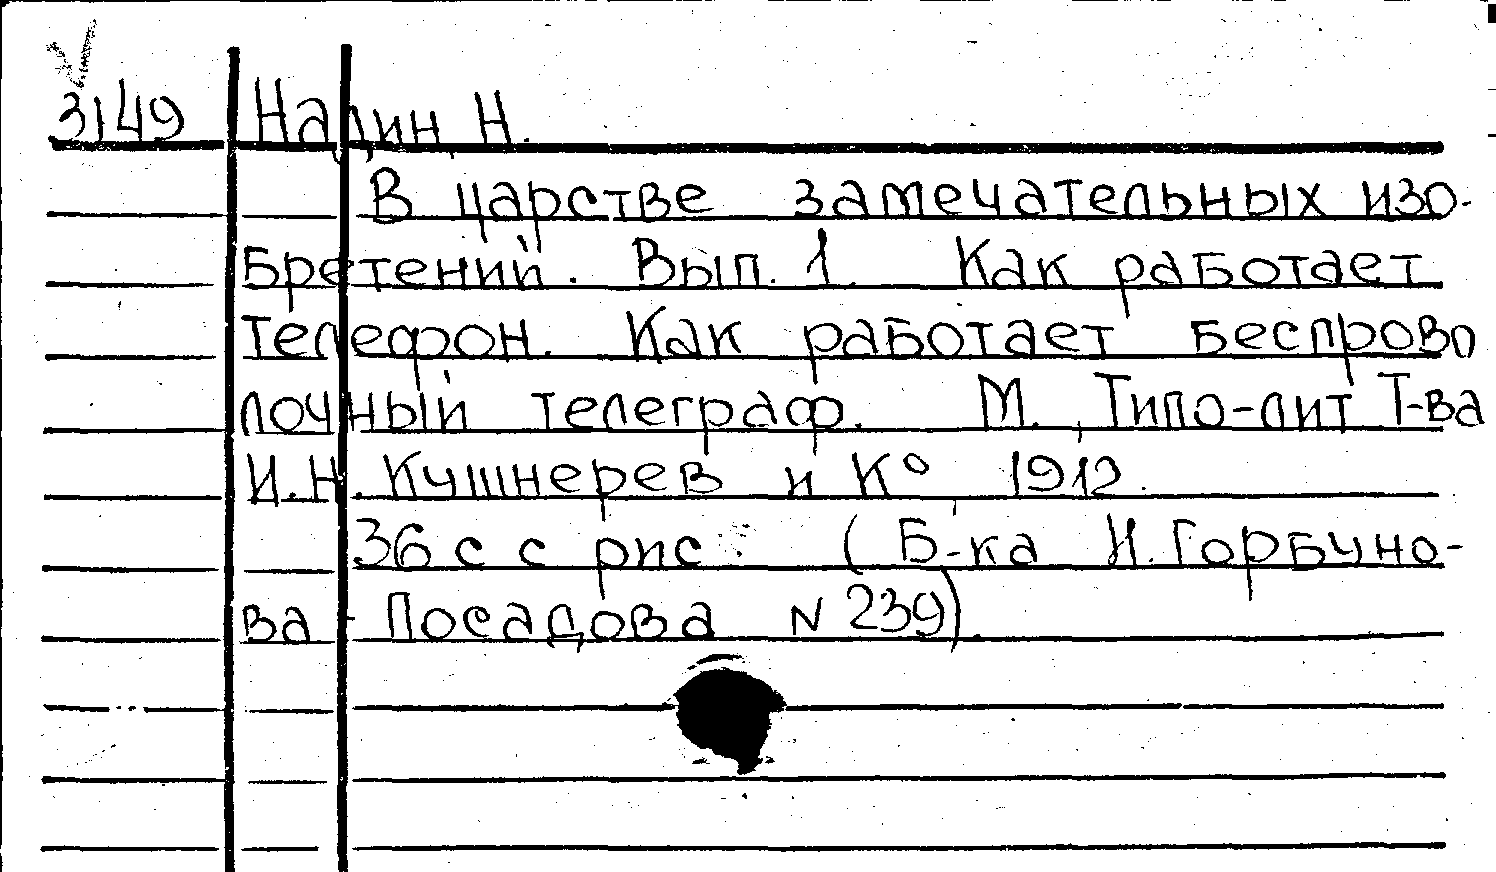 3149 Надин, Н.
В царстве замечательных изо-
бретений. Вып. 1. Как работает
телефон. Как работает беспрово
лочный телеграф. М., Типо-лит Т-ва
И.Н. Кушнерев и К° 1912.
36 с с рис. (Б-ка И. Горбуно-
ва - Посадова N 239).